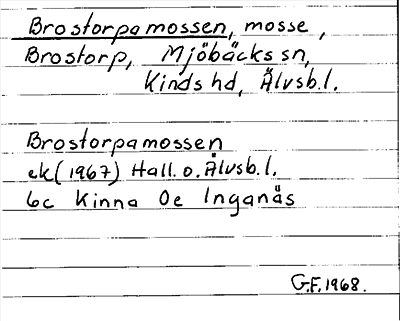 Brostorpamossen, mosse,
Brostorp, Mjöbäcks sn,
Kinds hd, Älvsb.l.
Brostorpamossen
ek(1967) Hall. o. Älvsb.l.
6c Kinna 0e Inganäs
G.F. 1968.